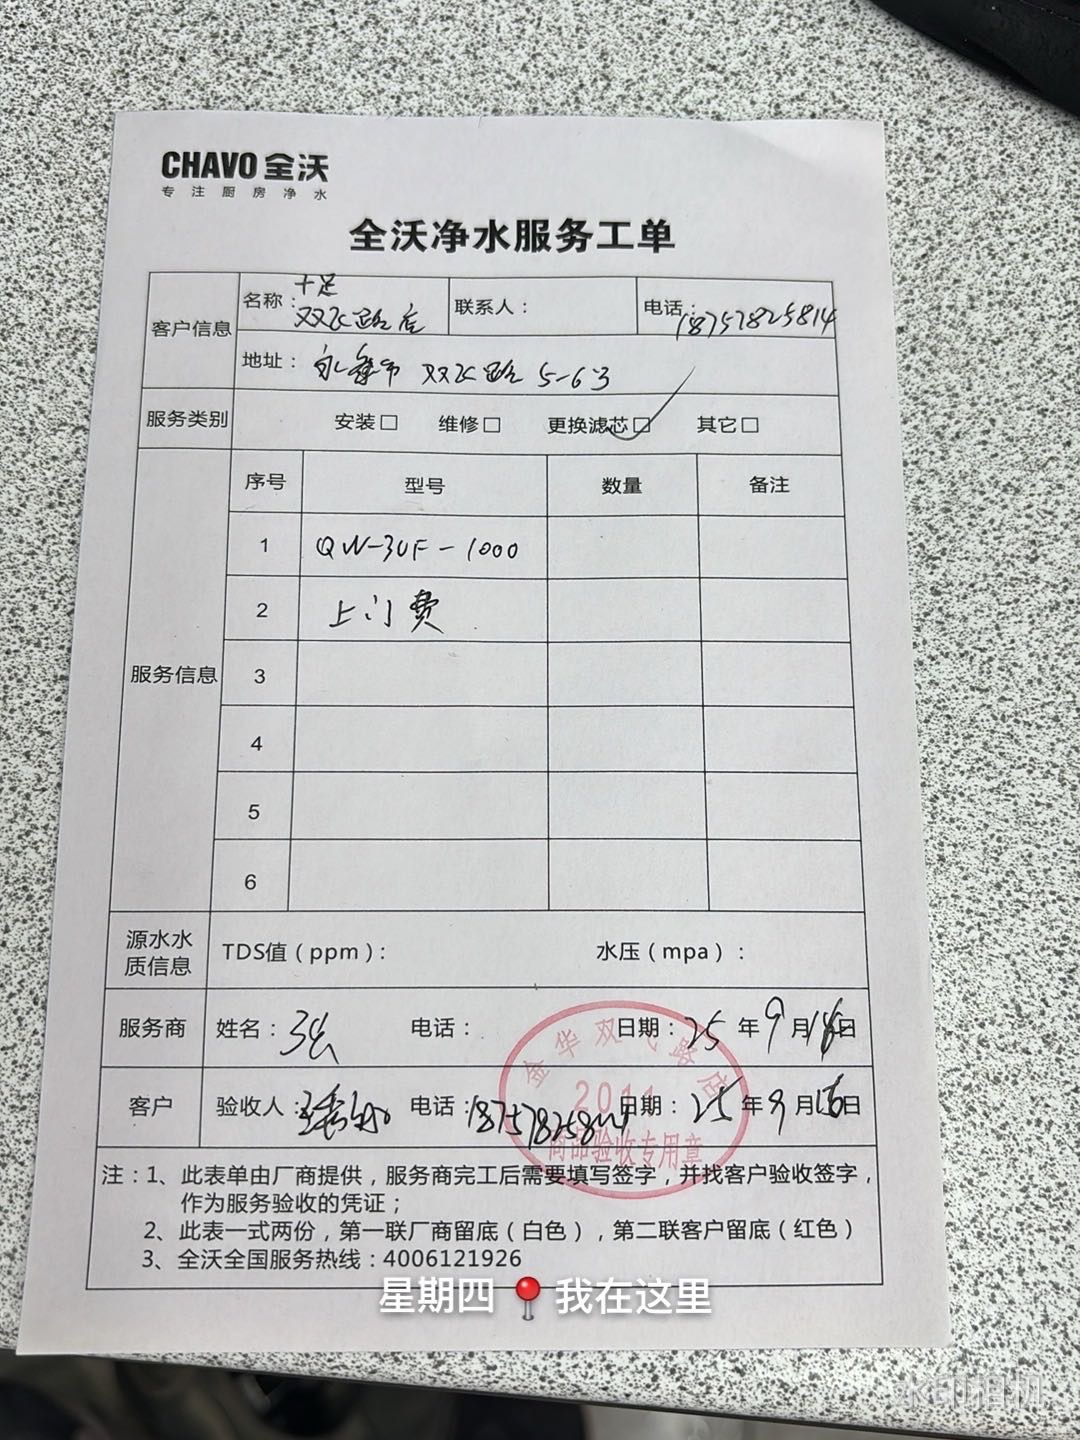 CHAVO 全沃
专注厨房净水
全沃净水服务工单
客户信息
名称：十足
双飞路店
联系人：
电话：18757825814
地址：永康市 双飞路 5-6号
服务类别
安装□ 维修□ 更换滤芯□ 其它□
服务信息
序号 型号 数量 备注
1 QW-3UF-1000
2 上门费
3
4
5
6
源水水质信息
TDS值（ppm）： 水压（mpa）：
服务商 姓名： 电话： 日期：25年9月18日
客户 验收人： 电话：18757825814 日期：25年9月18日
金华双飞路店
2011
商品验收专用章
注：1、此表单由厂商提供，服务商完工后需要填写签字，并找客户验收签字，
作为服务验收的凭证；
2、此表一式两份，第一联厂商留底（白色），第二联客户留底（红色）
3、全沃全国服务热线：4006121926
星期四 📍 我在这里
水印相机